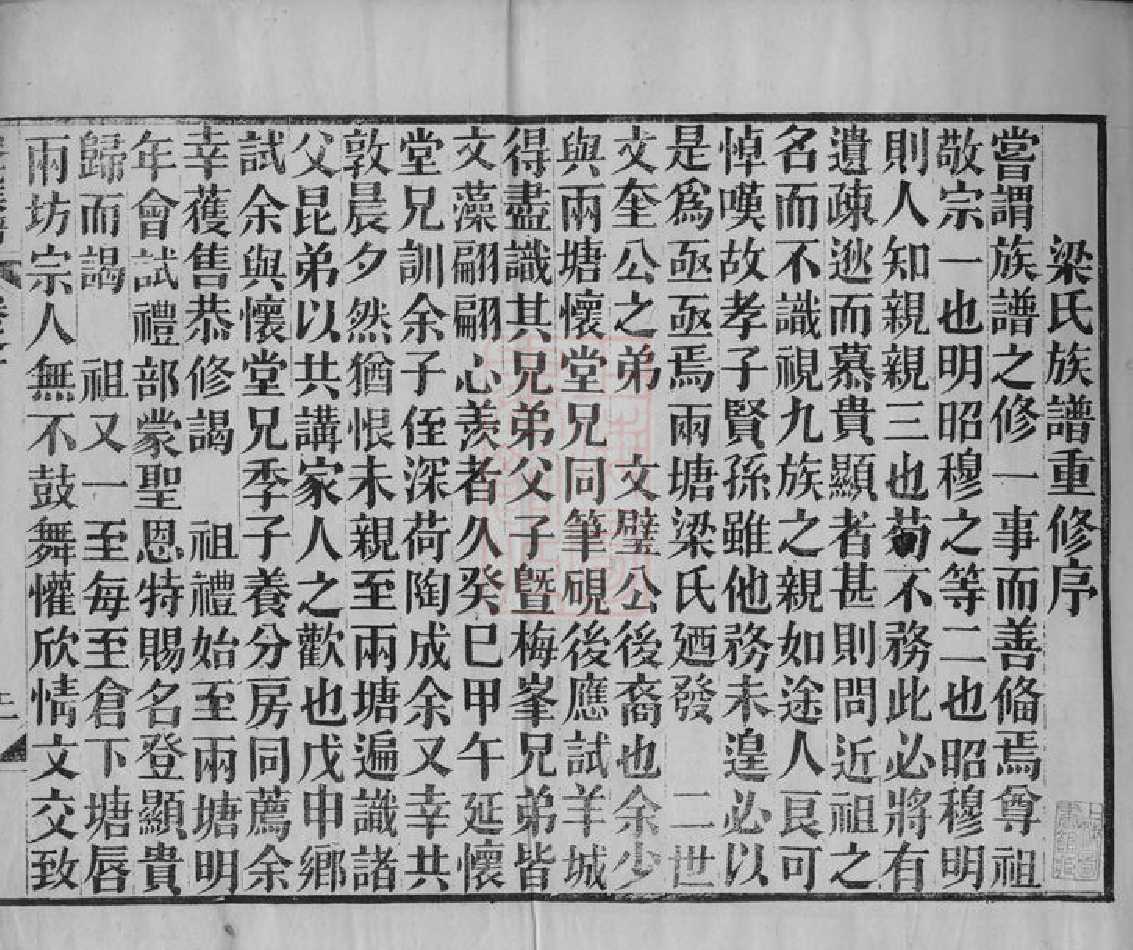 梁氏族譜重修序
嘗謂族譜之修一事而善俻焉尊祖
敬宗一也明昭穆之等二也昭穆明
則人知親親三也茍不務此必將有
遺疎逖而慕貴顯者甚則問近祖之
名而不識視九族之親如途人良可
悼嘆故孝子賢孫雖他務未遑必以
是爲亟亟焉兩塘梁氏廼發 二世
文奎公之弟 文璧公後裔也余少
與兩塘懷堂兄同筆硯後應試羊城
得盡識其兄弟父子曁梅峯兄弟皆
文藻翩翩心羨者久癸巳甲午延懷
堂兄訓余子侄深荷陶成余又幸共
敦晨夕然猶恨未親至兩塘遍識諸
父昆弟以共講家人之歡也戊申鄉
試余與懷堂兄季子養分房同薦余
幸獲售恭修謁 祖禮始至兩塘明
年會試禮部蒙聖恩特賜名登顯貴
歸而謁 祖又一至每至倉下塘唇
兩坊宗人無不鼓舞懽欣情文交致